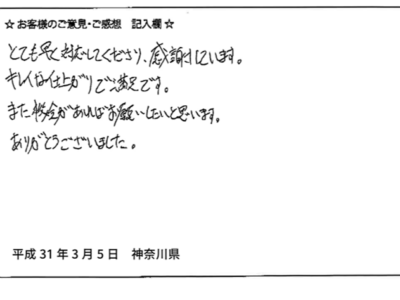 ☆お客様のご意見・ご感想　記入欄☆
とても早く対応してくださり、感謝しています。
キレイな仕上がりでご満足です。
また機会があればお願いしたいと思います。
ありがとうございました。
平成31年3月5日　神奈川県